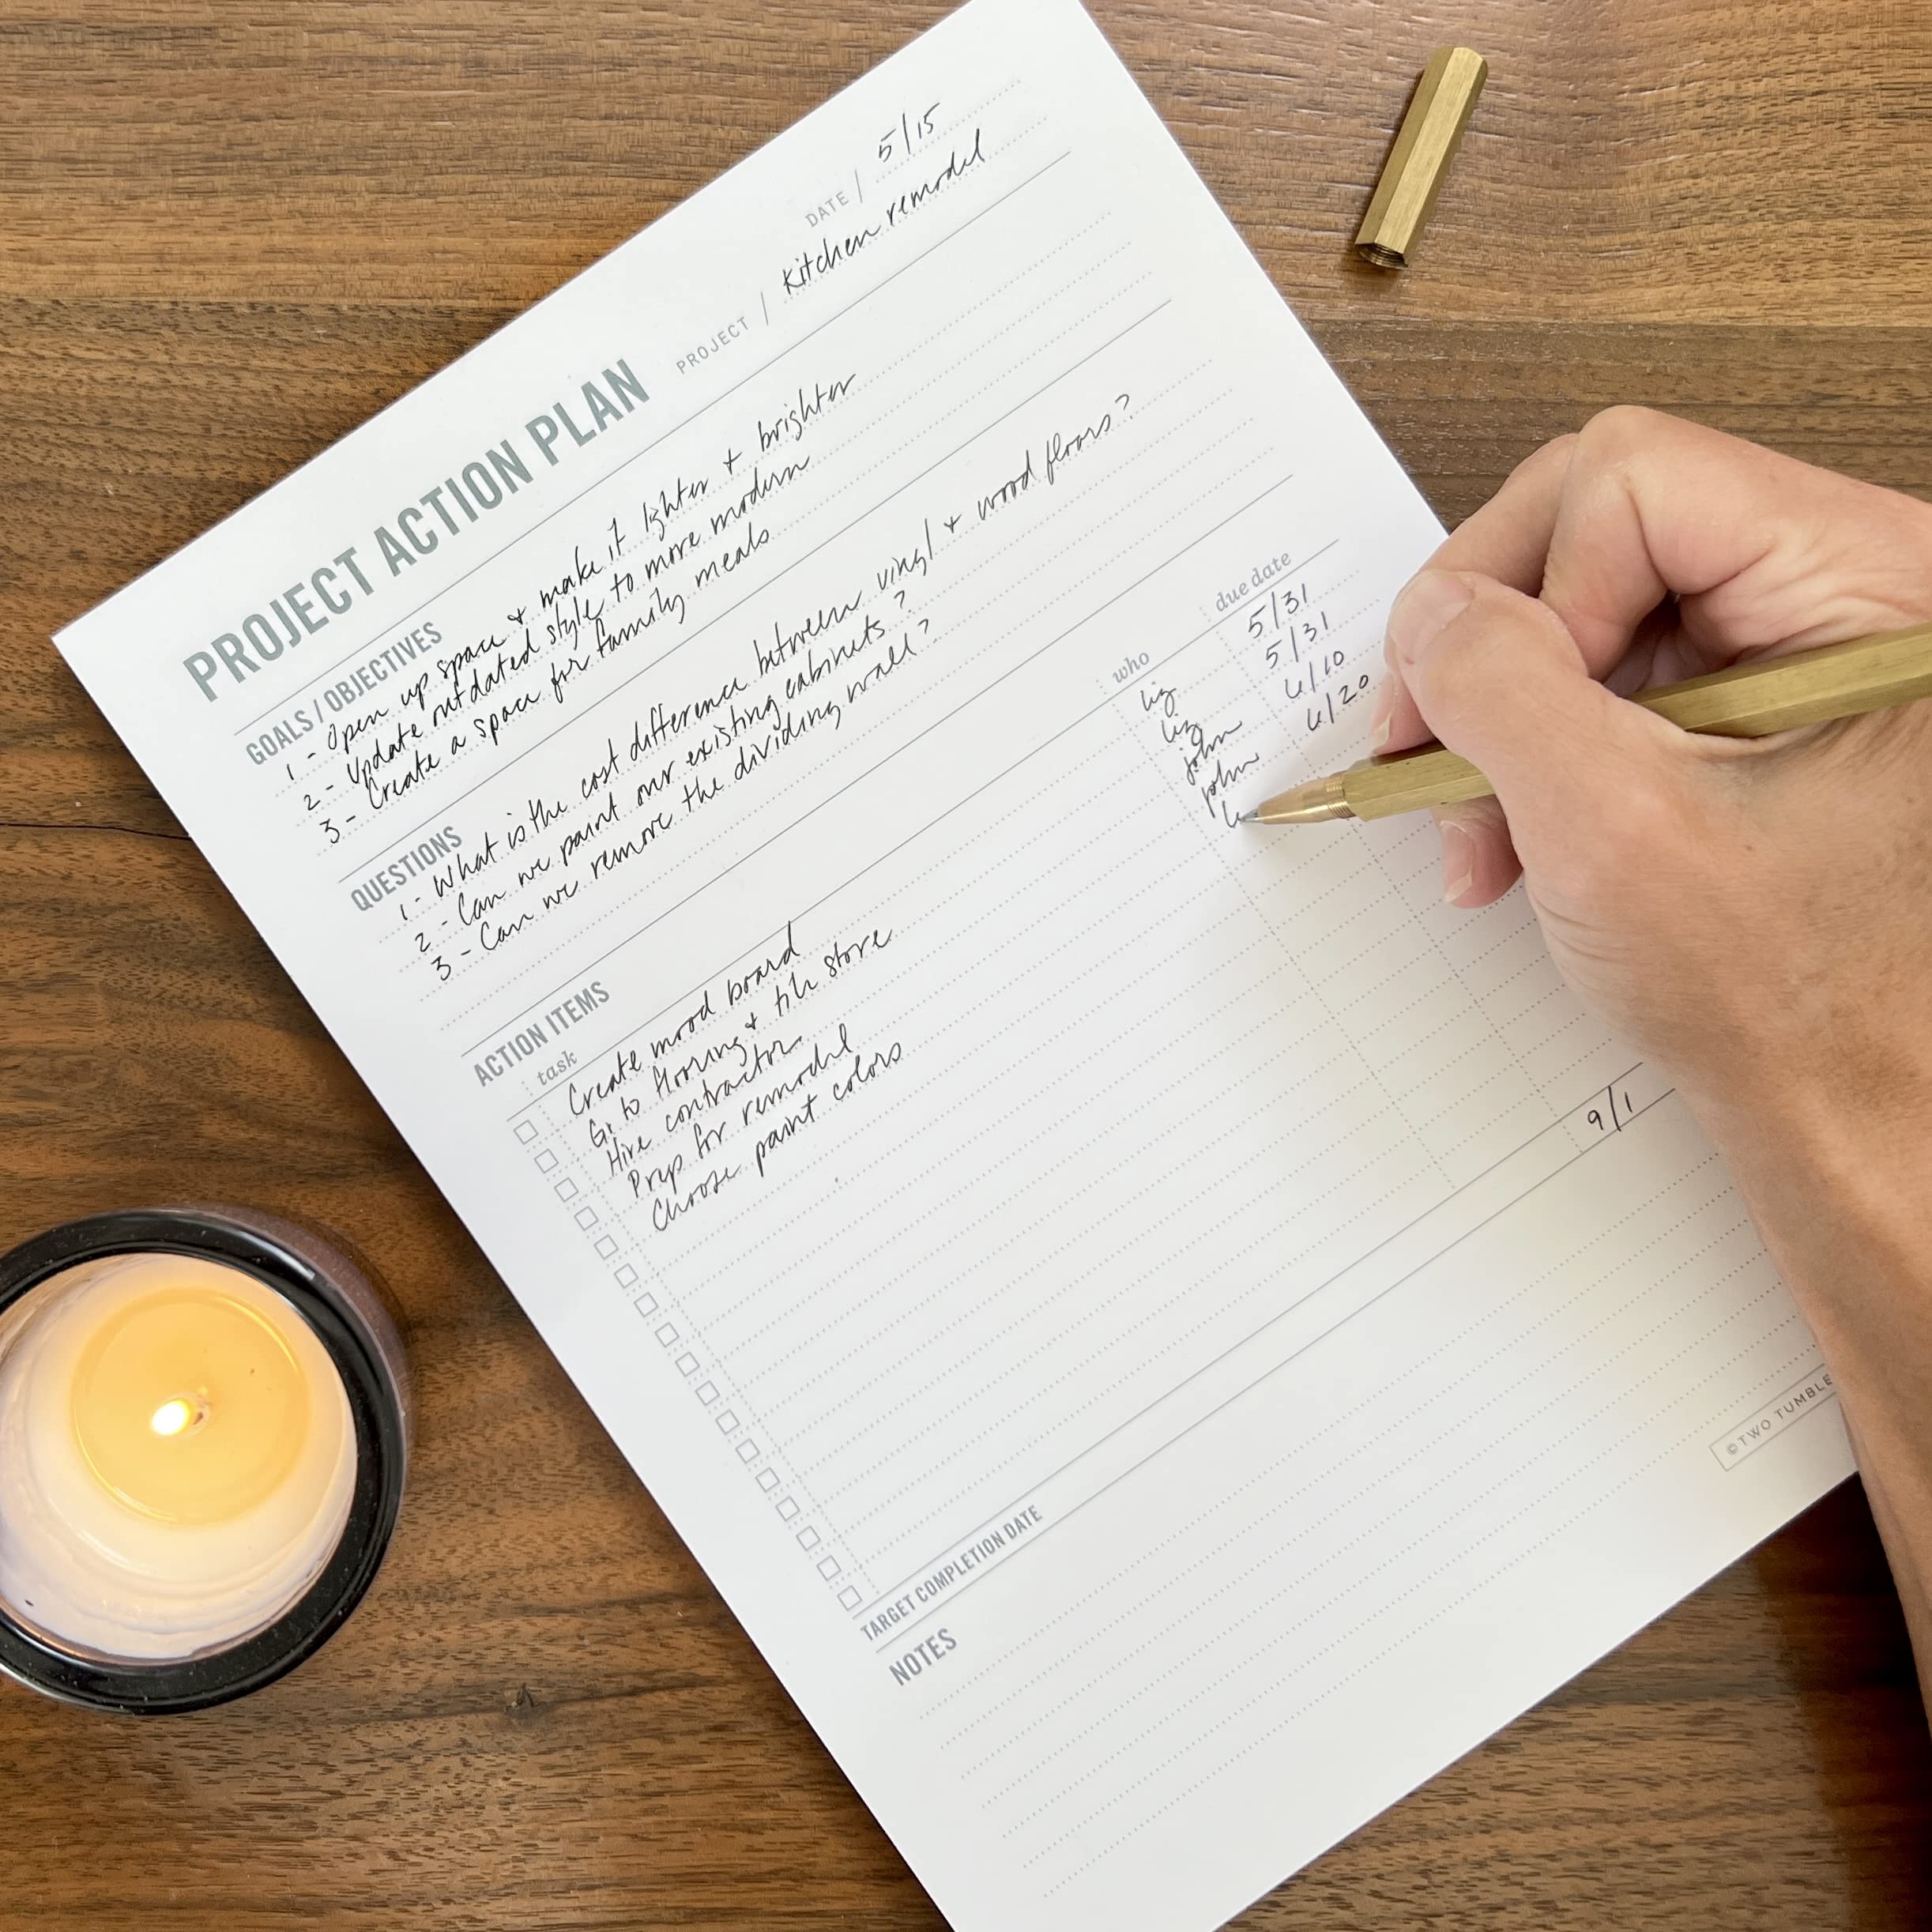 PROJECT ACTION PLAN
DATE / 5/15
PROJECT / Kitchen remodel
GOALS / OBJECTIVES
1 - Open up space & make it lighter + brighter
2 - Update outdated style to more modern
3 - Create a space for family meals
QUESTIONS
1 - What is the cost difference between vinyl + wood floors?
2 - Can we paint our existing cabinets?
3 - Can we remove the dividing wall?
ACTION ITEMS
task who due date
Create mood board liz 5/31
Go to flooring & tile store liz 5/31
Hire contractor john 6/10
Prep for remodel john 6/20
Choose paint colors
TARGET COMPLETION DATE 9/1
NOTES
© TWO TUMBLE